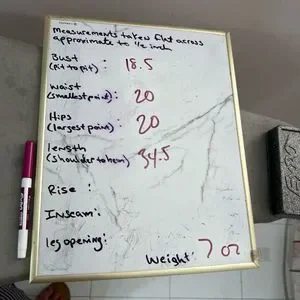 Measurements taken flat across
approximate to 1/2 inch
Bust : 18.5
(Pit to pit)
Waist : 20
(smallest point)
Hips : 20
(largest point)
length : 34.5
(shoulder to hem)
Rise :
Inseam :
leg opening :
Weight : 7 oz